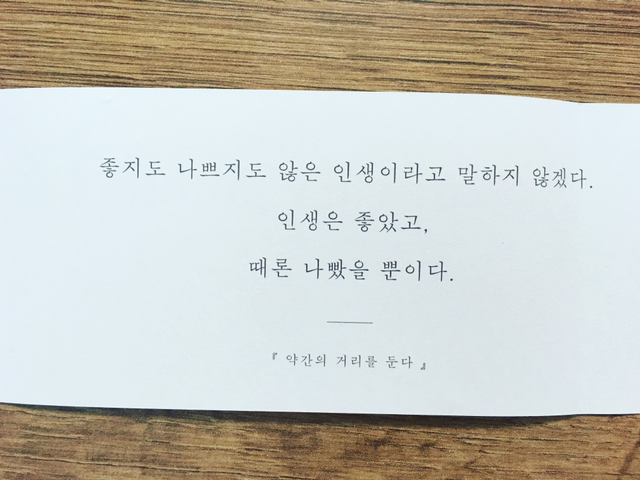 좋지도 나쁘지도 않은 인생이라고 말하지 않겠다.
인생은 좋았고,
때론 나빴을 뿐이다.
『 약간의 거리를 둔다 』